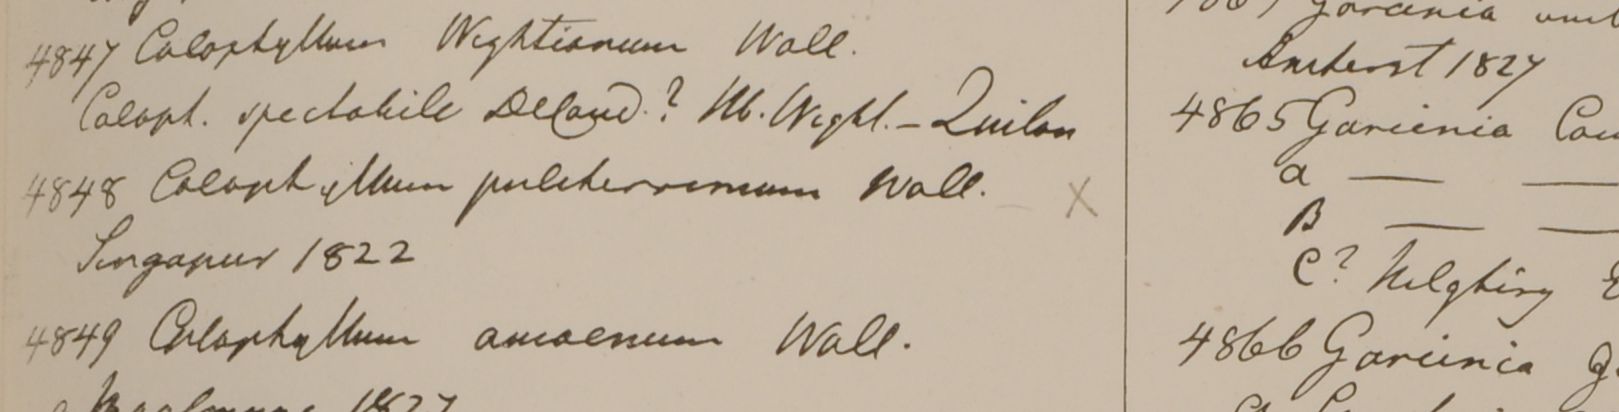 4847 Calophyllum Wightianum Wall.
Caloph. spectabile DeCand.? Hb. Wight. - Quilon
4848 Calophyllum pulcherrimum Wall. X
Singapur 1822
4849 Calophyllum amoenum Wall.
1827
Garcinia
Amherst 1827
4865 Garcinia
a — —
B — —
C? Nilghiry
4866 Garcinia